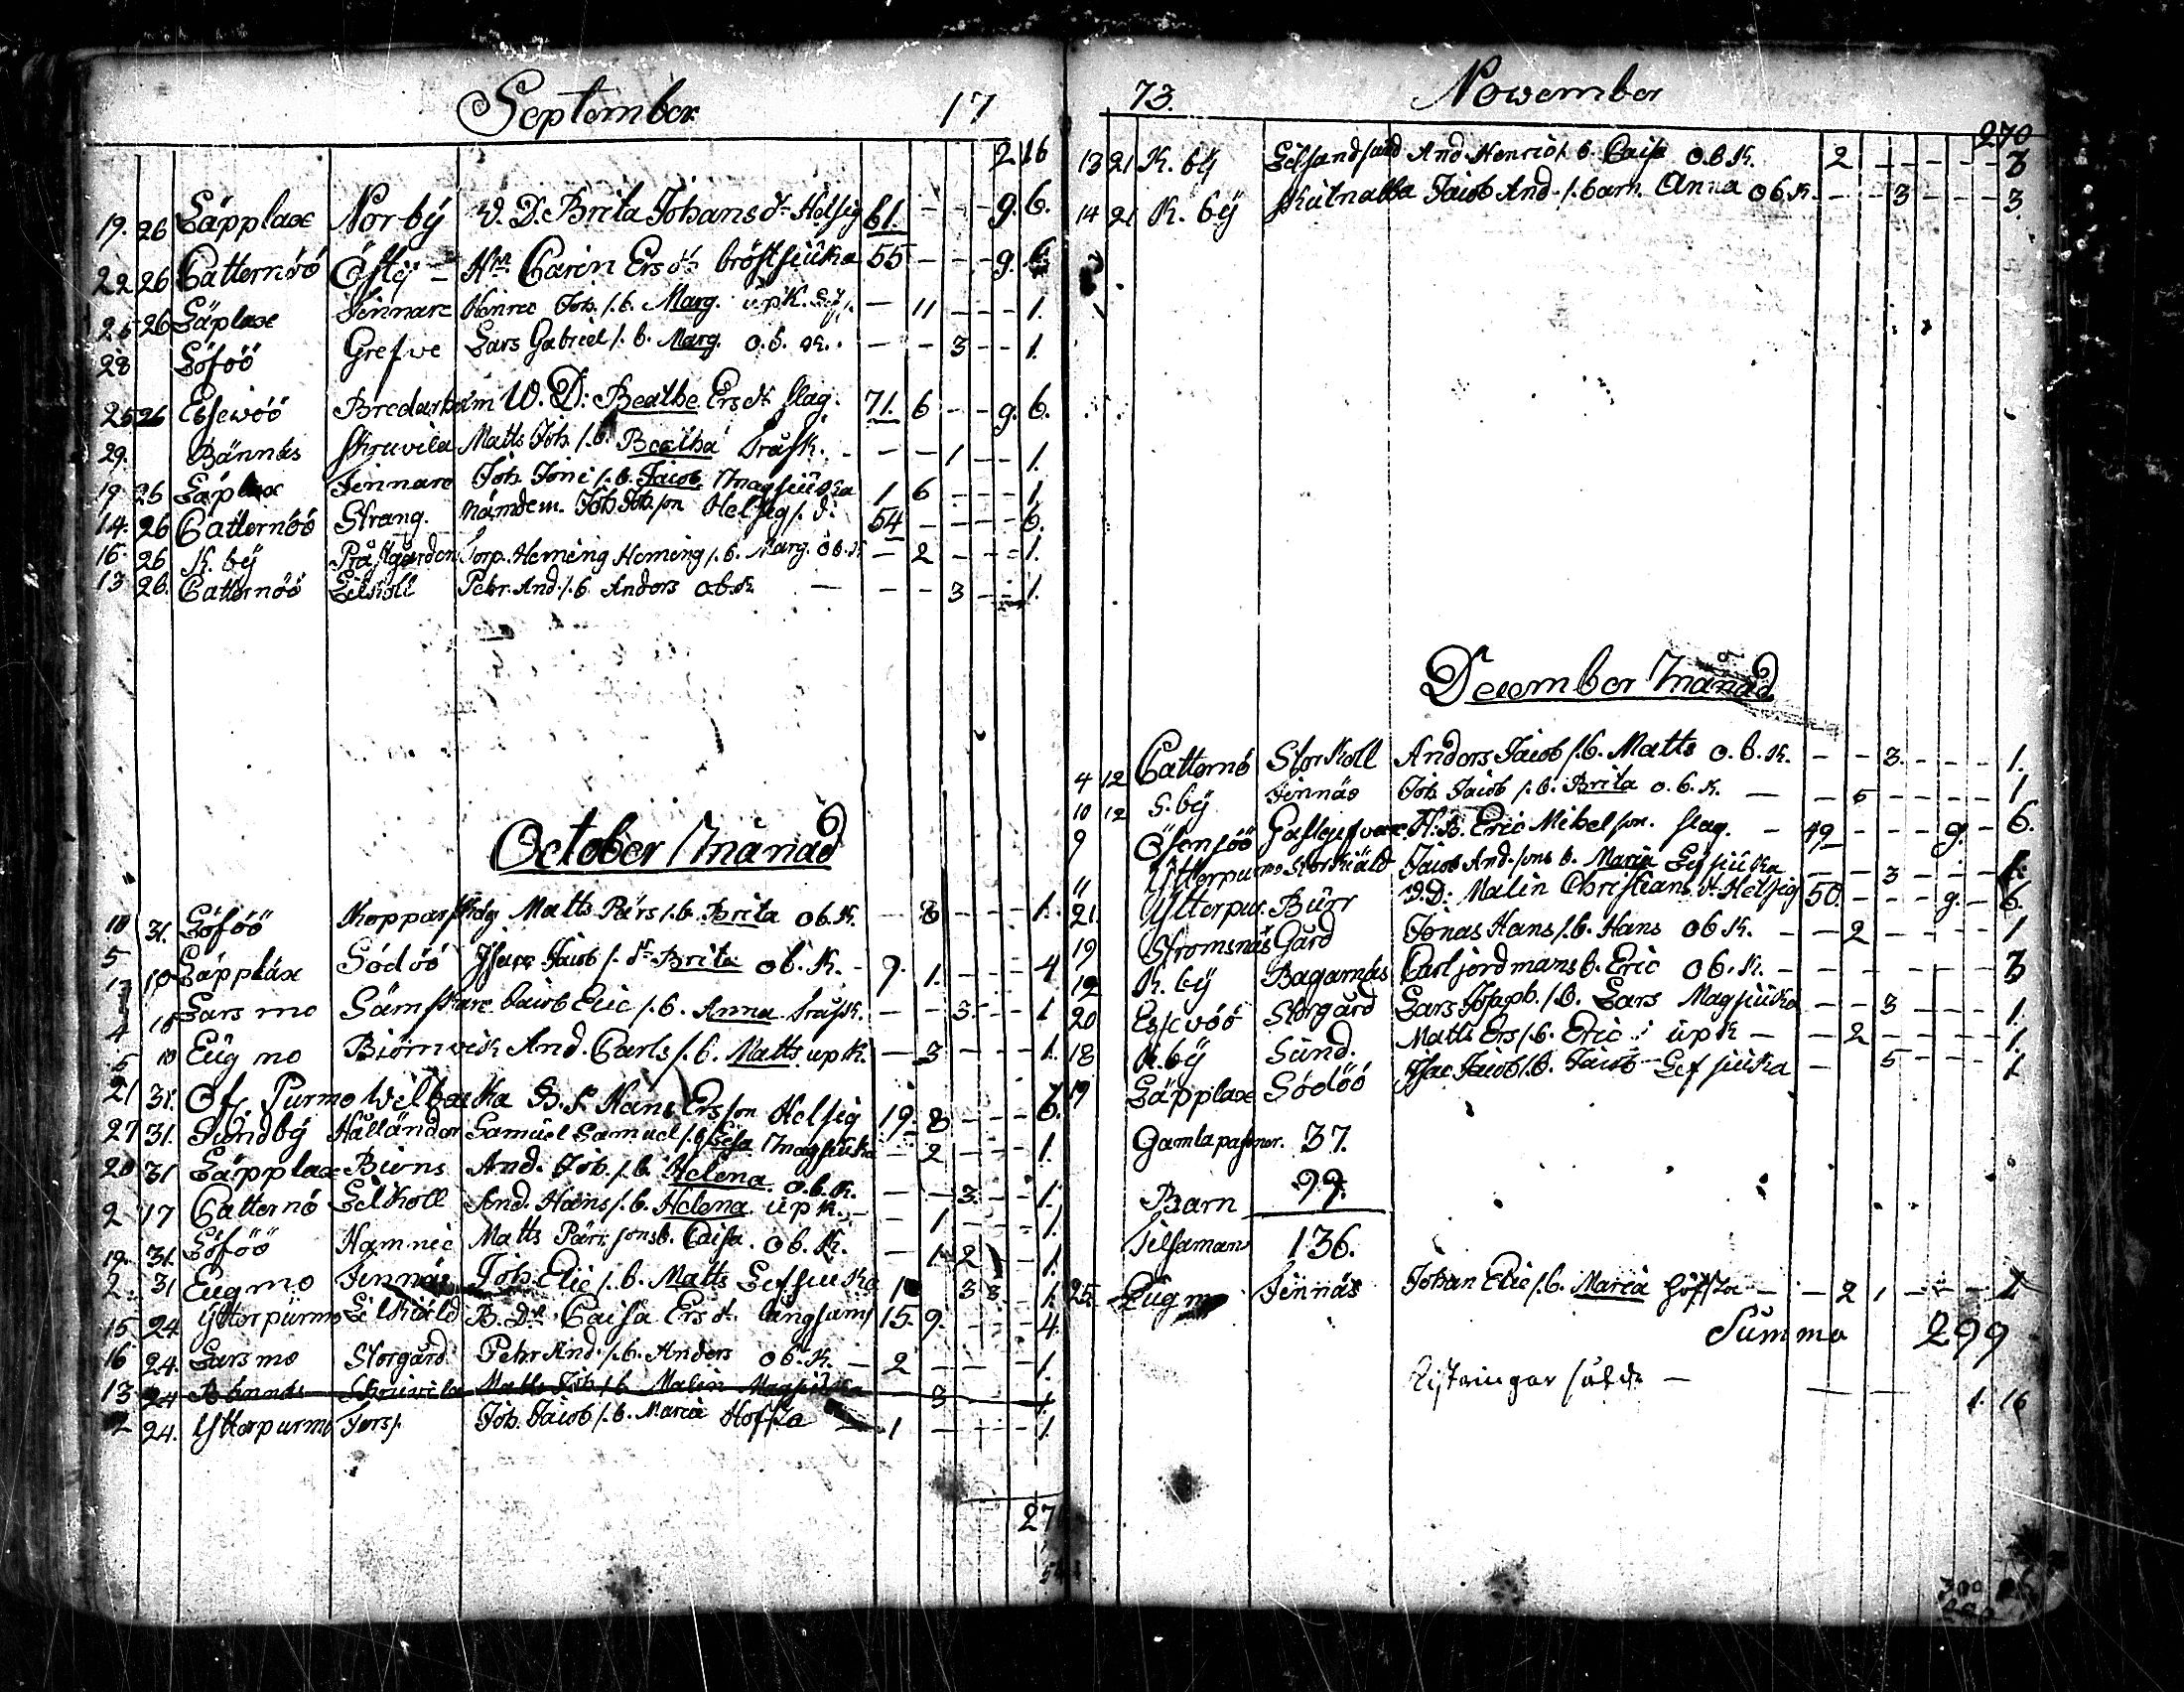 September 17
216
19. 26 Läpplax Norbÿ W. D. Brita Johans dr Hetsig 61. - - - 9. 6.
22 26 Catternöö Östej - Hu Carin Ers dr bröstsiuka 55 - - - 9. 6.
25 26 Läplax Finnare Henric Joh. s. b. Marg. upk. - 11 - - - 1.
28 Löföö Grefve Lars Gabriel s. b. Marg. o. b. K. - - 3 - - 1.
25 26 Essewöö Bredarholm W. D: Beathe Ers dr slag. 71. 6 - - 9. 6.
29. Bännäs Skruvila Matts Joh. s. b. Beatha Trusk. - - 1 - - 1.
19 26 Läplax Finnare Joh. s. b. Jacob Magsiuka 1 6 - - - 1
14. 26 Catternöö Strang. nämdem. Joh Joh. son Hetsig s. d: 54 - - - - 6.
16. 26 K. bÿ Prästgården Torp. Heming Heming s. b. Marg. ob. K - 2 - - - 1.
13 26. Catternöö Lilkoll Pehr. And. s. b Anders ob. K - - 3 - - 1.
October Månad
10 31. Löföö Kopparskolg Matts Pärs s. b. Brita ob. K. - 8 - - - 1.
5 10 Läpplax Södöö Isaac Jacob s. dr Brita ob. K. - 9. 1. - - - 4
4 10 Lars mo Sämskare Jacob Eric s. b. Anna Trusk. - - 3. - - 1
5 10 Eugmo Biörnwick And. Carls s. b. Matts upk. - 3 - - - 1.
21 31. Öf. Purmo Wilbacka B. S. Hans Ersson Hetsig 19. 8 - - - 6.
27 31. Sundbÿ Hålländer Samuel Samuel s. b. Magsiuka - 2 - - - 1.
20 31 Läpplax Biens And. Joh. s. b. Helena. o. b. K. - - 3. - - 1.
2 17 Catternö Lilkoll And. Hans s. b. Helena upk. - - 1 - - 1.
19. 31. Löföö Hamnie Matts Pärs sons b. Caisa. ob. K. - 1 2 - 1.
2. 31 Eugmo Finnäs Joh. Eric s. b. Matts Lefsiuka 1 3 3. 1.
15. 24 Ytterpurmo Lilkiäld B. Dr Caisa Ers dr lungsams 15. 9. - - - 4.
16 24. Larsmo Storgård. Pehr And. s. b. Anders ob. K. - 2 - - - 1.
13 24 Bännäs Skruvila Matts Joh s b Malin Magsiuka - 3 - - 1
2 24. Ytterpurmo Forss. Joh. Jacob s. b. Maria Hosta - 1 - - - 1.
27

73. November
270
13 21 K. bÿ Lillsandsund And. Henrics. b. Caisa o. b. K. 2 - - - - - 3
14 21 K. bÿ Skutnabba Jacob And. s. barn. Anna ob. K. - - 3 - - - 3.
December Månad
4 12 Catternö Storkoll Anders Jacob s. b. Matts o. b. K. - - 3. - - - 1.
10 12 S. bÿ Finnäs Joh. Jacob s. b. Brita o. b. K. - - 5 - - - - 1
9 Ösensöö Gästgifvare H. B. Eric Mikelson. slag. - 49 - - - 9. - 6.
11 Ytterpurmo Storkiäld Jacob And. sons b. Maria Lefsiuka - - 3 - - - 1.
21. Ytterpur. Bürr D: Malin Christians dr Hetsig 50. - - - 9. - 6.
19 Stromsnäs Gård Jonas Hans s. b. Hans ob K. - - 2 - - - - 1
12 K. bÿ Bagarnäs Carl jordmans b. Eric ob. K. - - - - - - 3
20 Essevöö Storgård Lars Joseph. s. b. Lars Magsiuka - - 3 - - - 1.
18 K. bÿ Sund. Matts Ers s. b. Eric upk - - 2 - - - - 1.
19 Läpplax Södöö Isac Jacob s. b. Jacob Lefsiuka - 5 - - - 1
Gamla passioner. 37.
Barn 99.
Tilsamans 136.
25. Eugmo Finnäs Johan Eric s. b. Maria Hosta - - 2 1 - - - 1
Summa 299
Ristningar - - - 1. 16